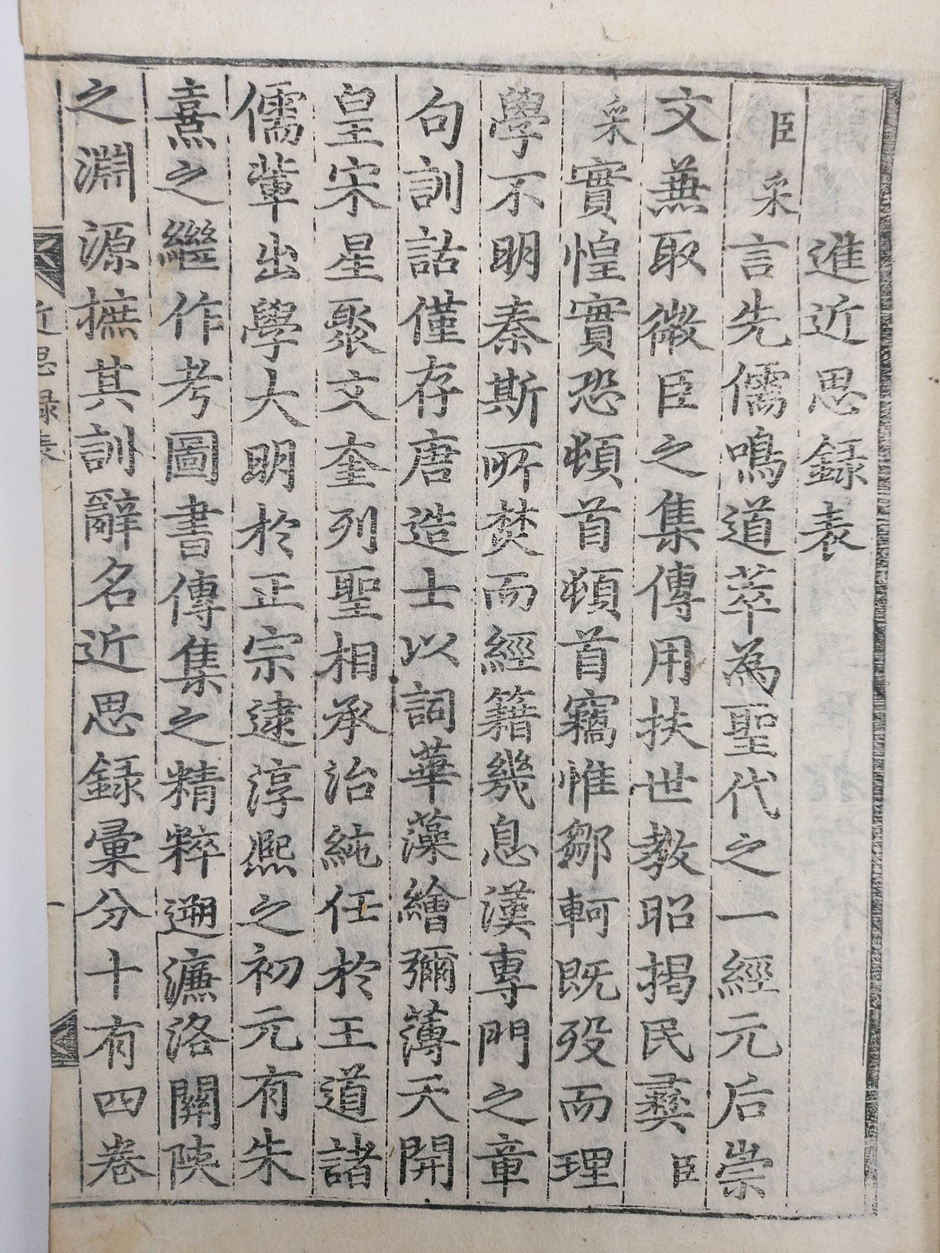 進近思録表
臣采言先儒鳴道萃為聖代之一經元后崇
文蕪取微臣之集傳用扶世教昭掲民彝臣
采實惶實恐頓首頓首竊惟鄒軻既歿而理
學不明秦斯所焚而經籍幾息漢專門之章
句訓詁僅存唐造士以詞華藻繪彌薄天開
皇宋星聚文奎列聖相承治純任於王道諸
儒輩出學大明於正宗逮淳熙之初元有朱
熹之繼作考圖書傳集之精粹遡濂洛關陝
之淵源摭其訓辭名近思録彙分十有四巻
近思録表
一